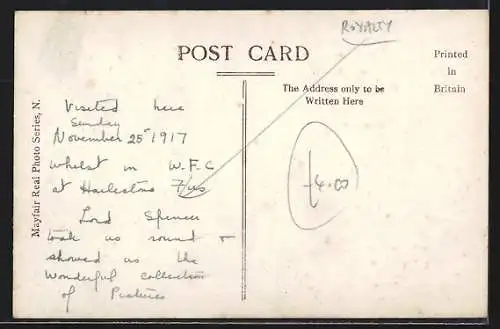 ROYALTY
POST CARD
Printed
in
Britain
The Address only to be
Written Here
Mayfair Real Photo Series, N.
Visited here
Sunday
November 25 1917
Whilst in W.F.C
at Harlestone
Lord Spencer
took us round &
showed us the
Wonderful collection
of Pictures
£4.00